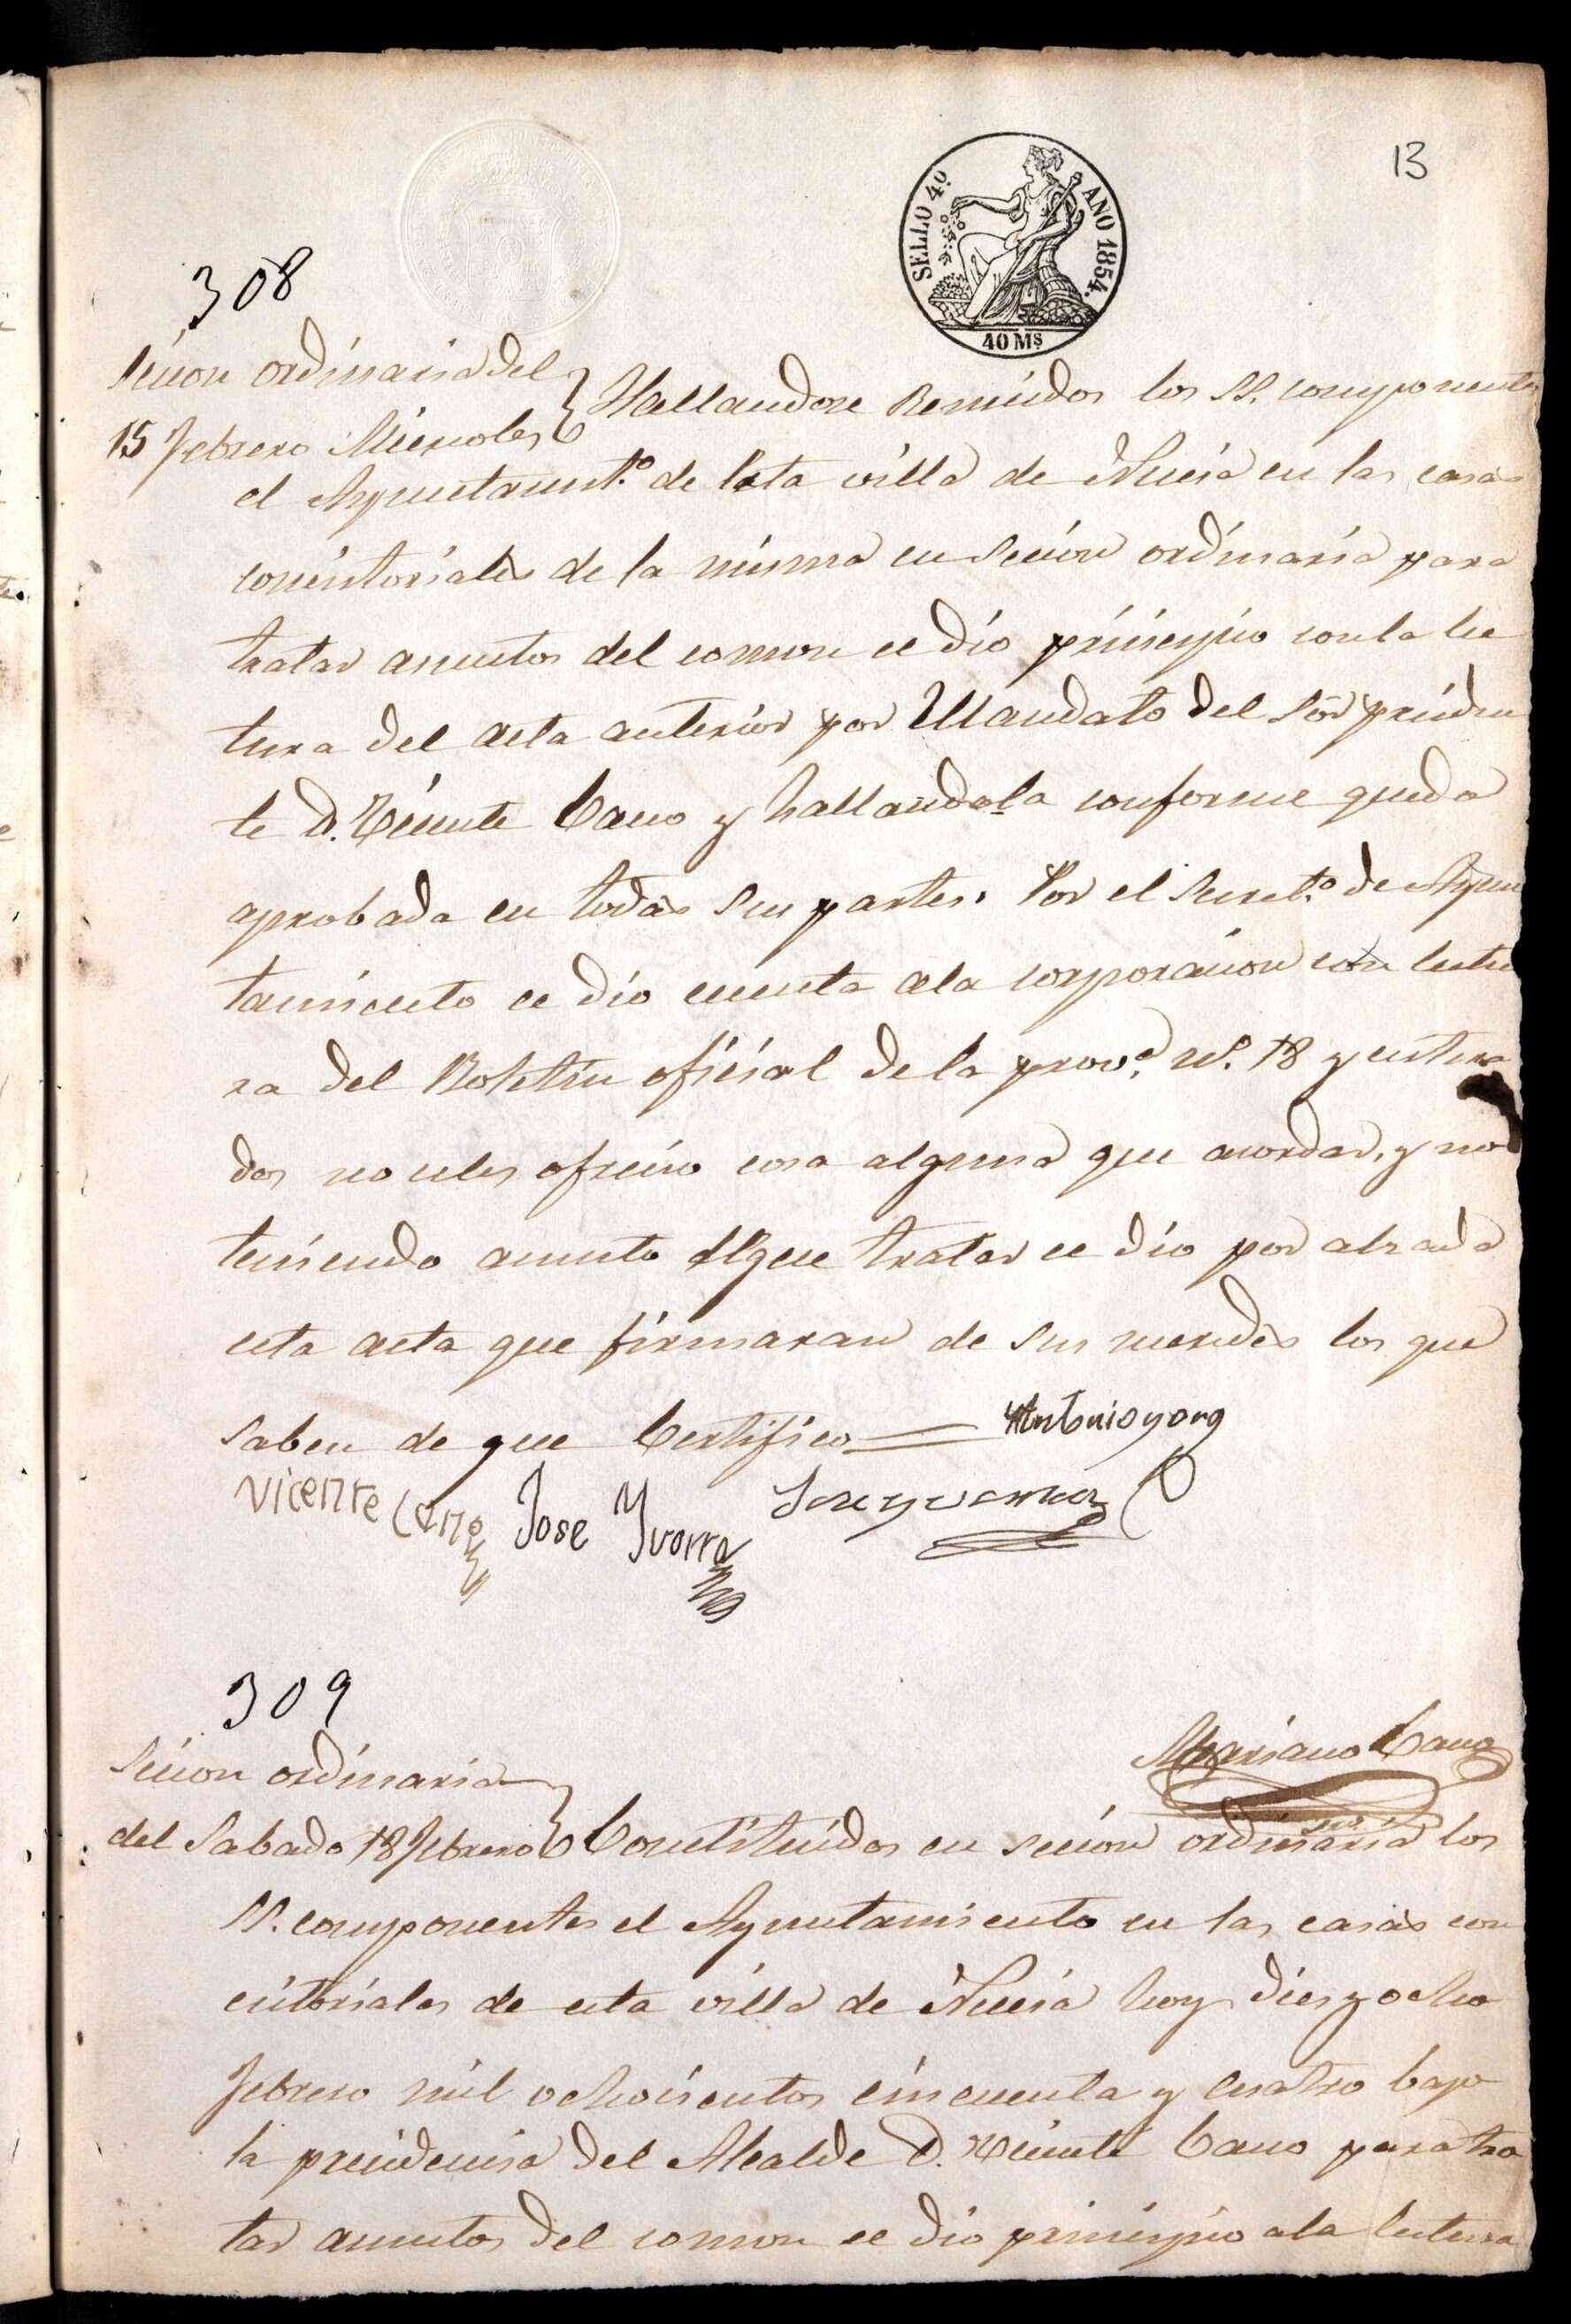 13
SELLO 4º AÑO 1854.
40 Ms
308
Secion ordinaria del
15 Febrero Miercoles
Hallandose Reunidos los SS. componentes
el Ayuntamtº. de Esta villa de Nucia en las casas
concistoriales de la misma en Secion ordinaria para
tratar asuntos del comon ce dio principio con la lec
tura del acta anterior por Mandato del Sor preciden
te D. Vicente Cano y hallandola conforme queda
aprobada en todas sus partes. Por el Secretº. de Ayun
tamiento ce dio cuenta ala corporacion con lectu
ra del Boletin oficial de la provª. nº. 18 y entera
dos no celes ofrecio cosa alguna que acordar, y no
teniendo asunto de que tratar ce dio por alsada
esta acta que firmaran de sus mercedes los que
saben de que Certifico
Antonio yorg
Vicente Cano
Jose Yvorra
309
Mariano Cano
Secion ordinaria
del Sabado 18 Febrero
Constituidos en secion ordinaria los
SS. componentes el Ayuntamiento en las casas con
citoriales de esta villa de Nucia hoy dies y ocho
Febrero mil ochocientos cincuenta y cuatro bajo
la precidencia del Alcalde D. Vicente Cano para tra
tar asuntos del comon ce dio principio ala lectura